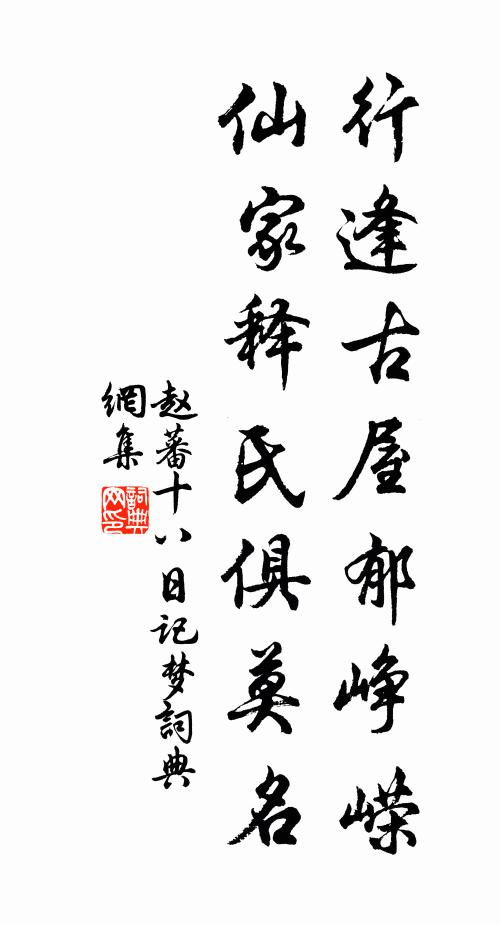 行逢古屋郁峥嵘
仙家释氏俱莫名
赵蕃十八日记梦詞典
網集
詞典
网印